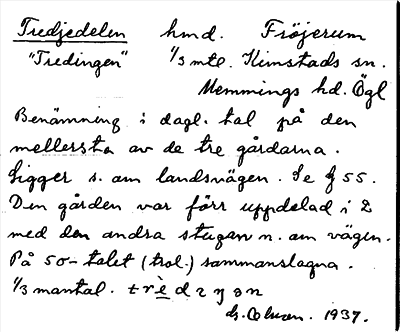 Tredjedelen hmd. Fröjerum
"Tredingen" 1/3 mtl. Kimstads sn.
Memmings hd. Ögl
Benämning i dagl. tal på den
mellersta av de tre gårdarna.
Ligger s. om landsvägen. Se § 55.
Den gården var förr uppdelad i 2
med den andra stugan n. om vägen.
På 50-talet (trol.) sammanslagna.
1/3 mantal.
1937.